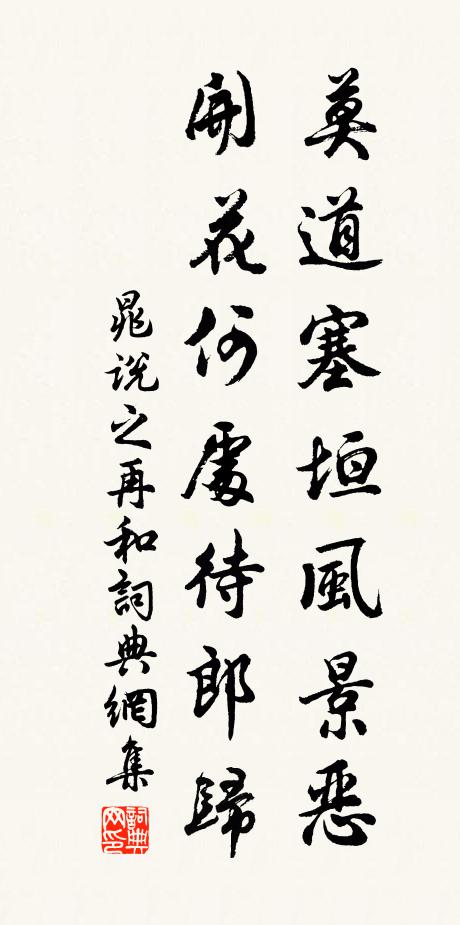 莫道塞垣風景惡
開花何處待郎歸
晁說之再和詞典網集
詞典網印